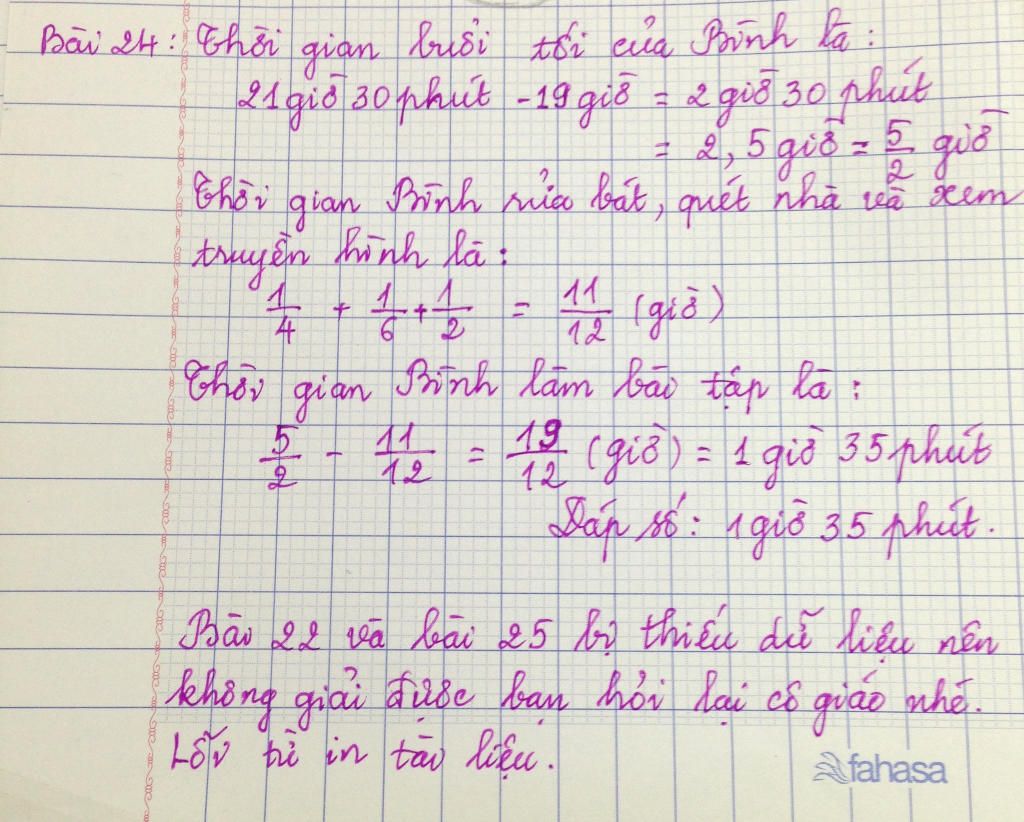 Bài 24: Thời gian buổi tối của Bình là:
21 giờ 30 phút - 19 giờ = 2 giờ 30 phút
= 2,5 giờ = 5/2 giờ
Thời gian Bình rửa bát, quét nhà và xem
truyền hình là:
1/4 + 1/6 + 1/2 = 11/12 (giờ)
Thời gian Bình làm bài tập là:
5/2 - 11/12 = 19/12 (giờ) = 1 giờ 35 phút
Đáp số: 1 giờ 35 phút.
Bài 22 và bài 25 bị thiếu dữ liệu nên
không giải được bạn hỏi lại cô giáo nhé.
Lỗi từ in tài liệu.
fahasa